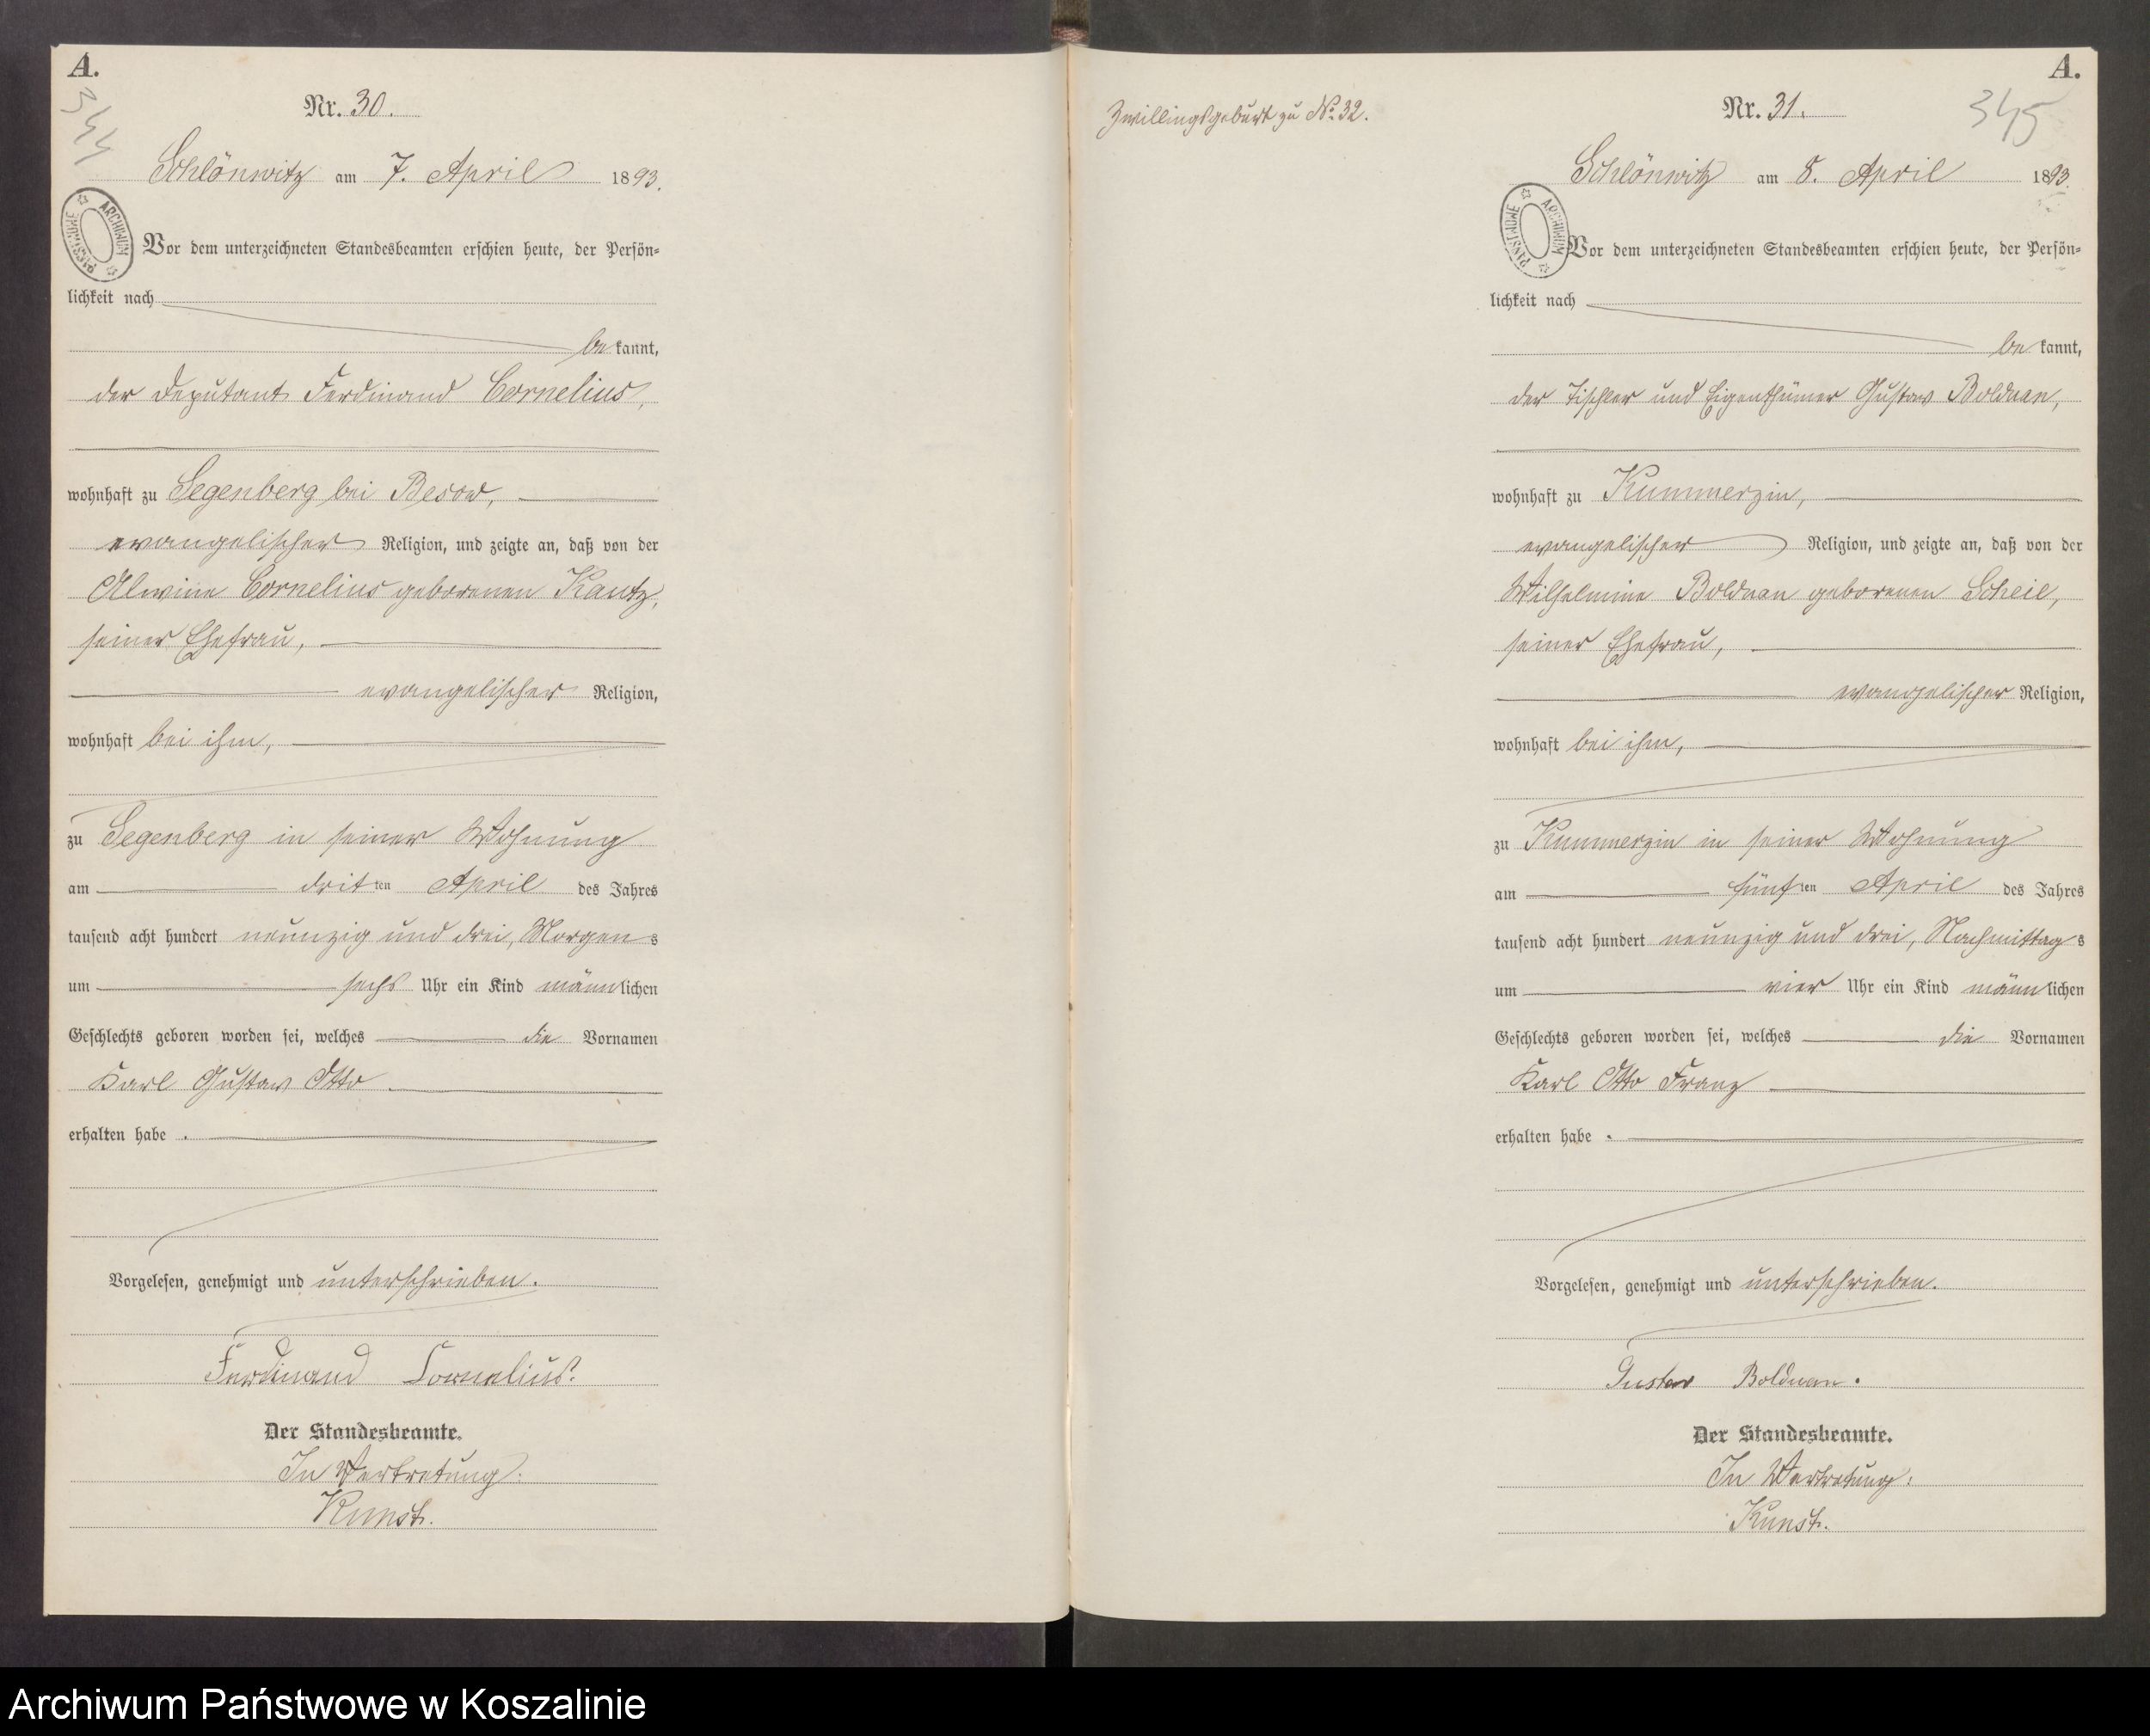 A.
344
Nr. 30.
Schlönwitz am 7. April 1893.
ARCHIWUM PAŃSTWOWE
Vor dem unterzeichneten Standesbeamten erschien heute, der Persön-
lichkeit nach
bekannt,
der Deputant Ferdinand Cornelius,
wohnhaft zu Segenberg bei Besow,
evangelischer Religion, und zeigte an, daß von der
Alwine Cornelius geborenen Kautz,
seiner Ehefrau,
evangelischer Religion,
wohnhaft bei ihm,
zu Segenberg in seiner Wohnung
am dritten April des Jahres
tausend acht hundert neunzig und drei, Morgens
um sechs Uhr ein Kind männlichen
Geschlechts geboren worden sei, welches die Vornamen
Karl Gustav Otto
erhalten habe.
Vorgelesen, genehmigt und unterschrieben.
Ferdinand Cornelius.
Der Standesbeamte.
In Vertretung:
Kunst.
A.
345
Zwillingsgeburt zu No. 32.
Nr. 31.
Schlönwitz am 8. April 1893.
ARCHIWUM PAŃSTWOWE
Vor dem unterzeichneten Standesbeamten erschien heute, der Persön-
lichkeit nach
bekannt,
der Tischler und Eigenthümer Gustav Bolduan,
wohnhaft zu Kummerzin,
evangelischer Religion, und zeigte an, daß von der
Wilhelmine Bolduan geborenen Scheil,
seiner Ehefrau,
evangelischer Religion,
wohnhaft bei ihm,
zu Kummerzin in seiner Wohnung
am fünften April des Jahres
tausend acht hundert neunzig und drei, Nachmittags
um vier Uhr ein Kind männlichen
Geschlechts geboren worden sei, welches die Vornamen
Karl Otto Franz
erhalten habe.
Vorgelesen, genehmigt und unterschrieben.
Gustav Bolduan.
Der Standesbeamte.
In Vertretung:
Kunst.
Archiwum Państwowe w Koszalinie